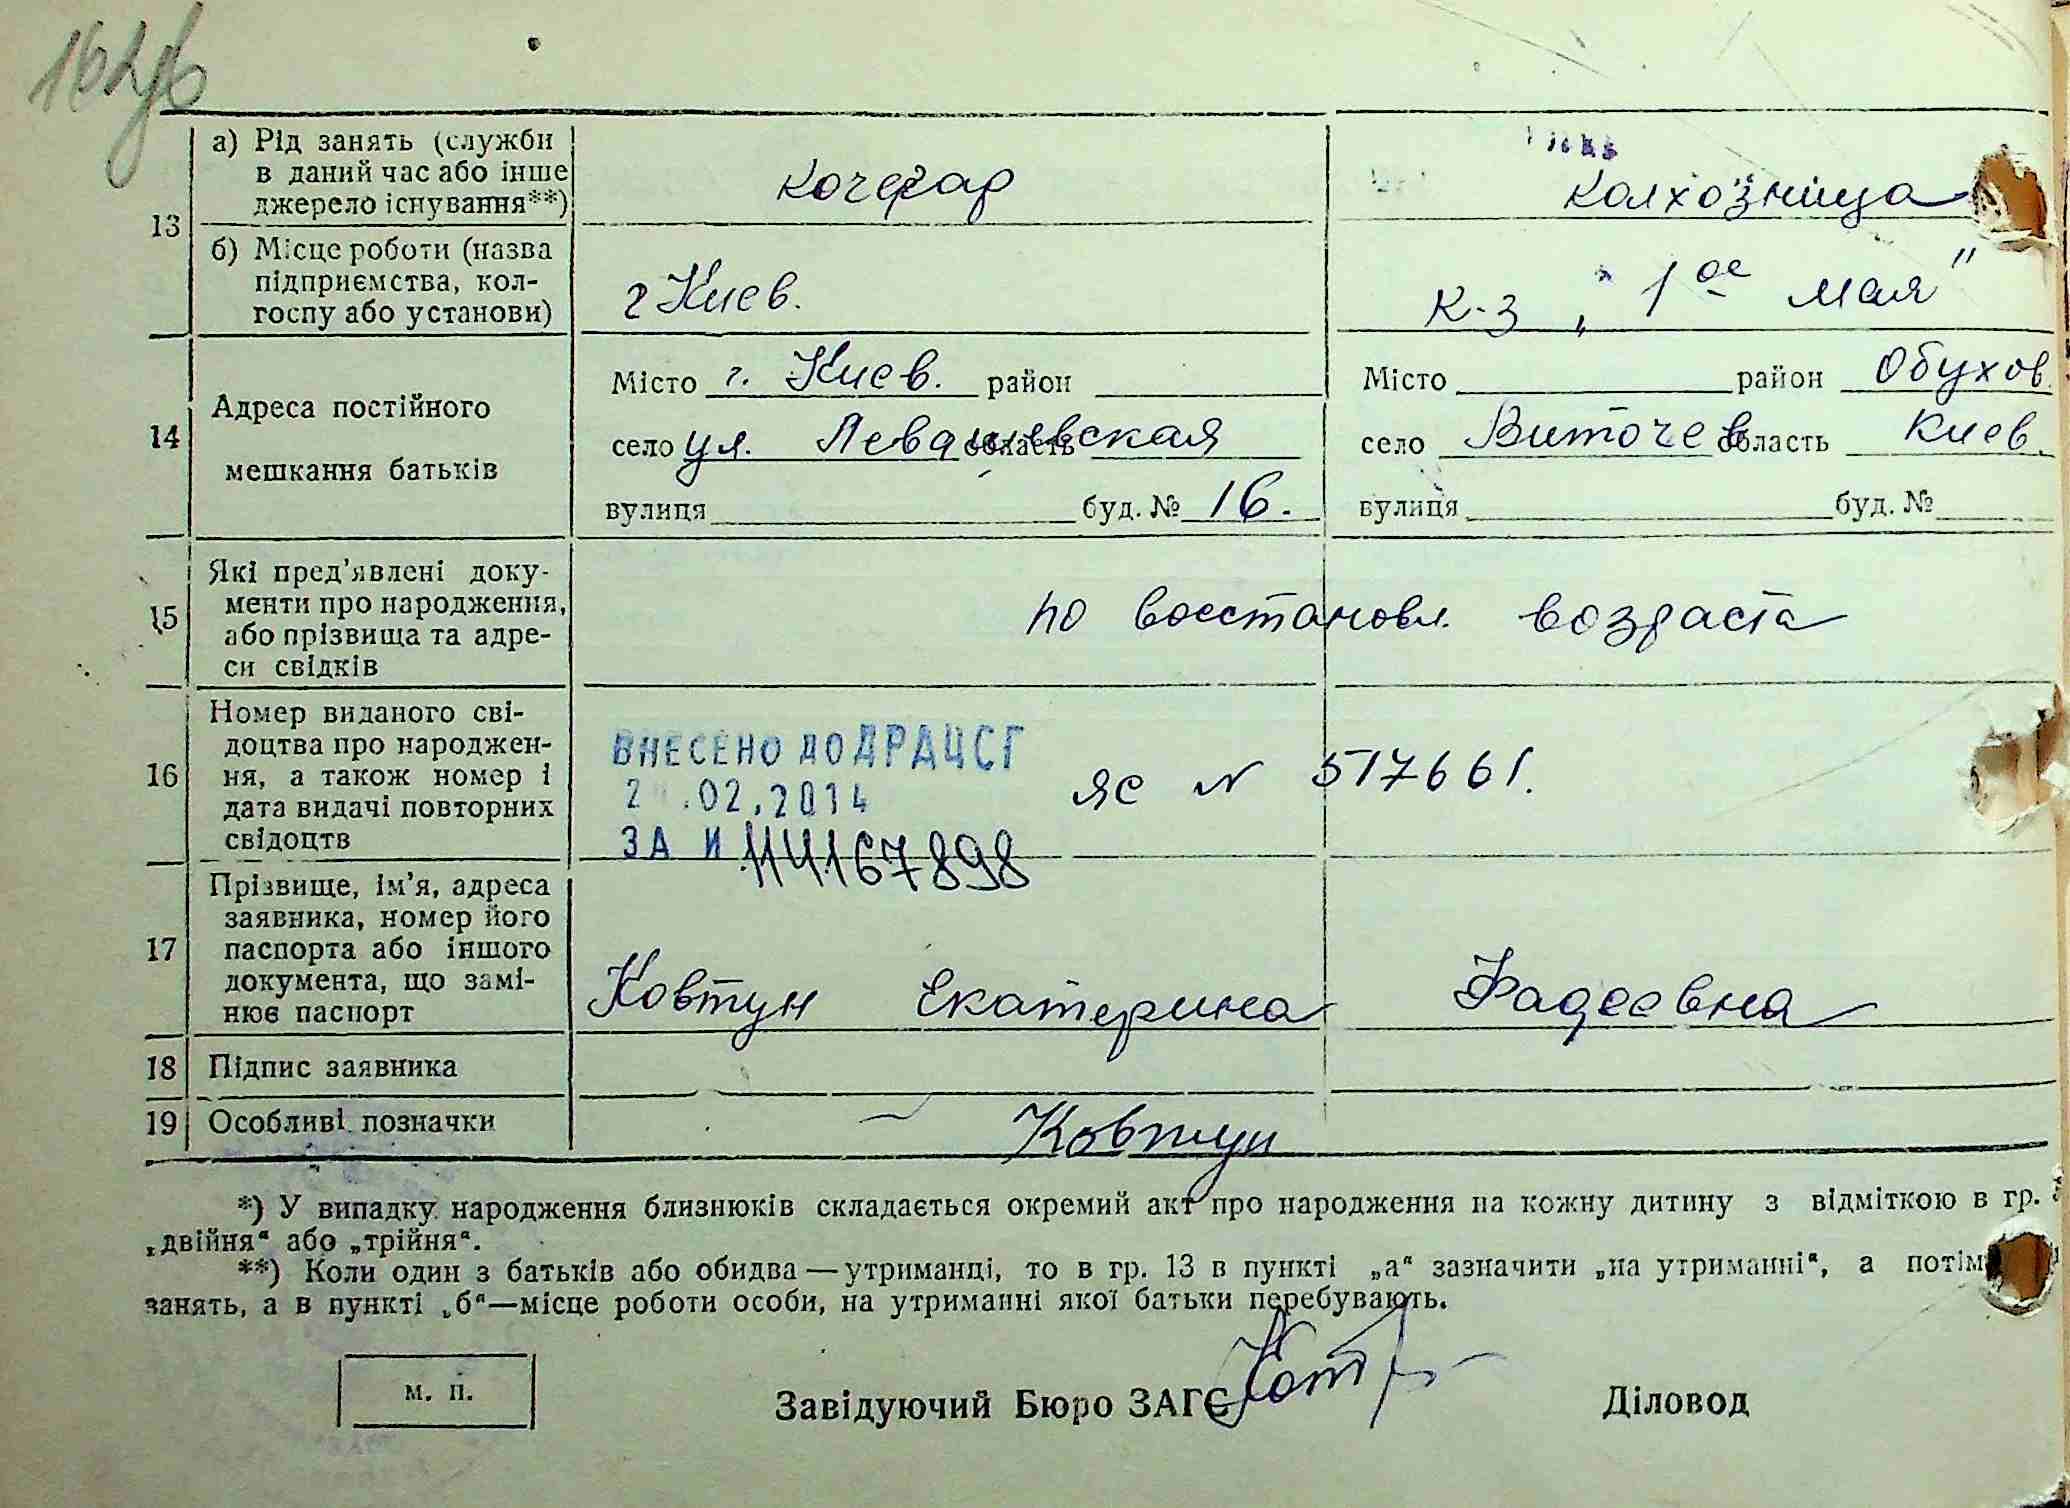 162
13
а) Рід занять (служби в даний час або інше джерело існування**)
кочегар
колхозница
б) Місце роботи (назва підприємства, колгоспу або установи)
г Киев.
к-з „1ое мая"
14
Адреса постійного мешкання батьків
Місто г. Киев. район
село ул. Левашевская область
вулиця буд. № 16.
Місто район Обухов.
село Виточев область Киев.
вулиця буд. №
15
Які пред'явлені доку-
менти про народження,
або прізвища та адре-
си свідків
по восстановл. возраста
16
Номер виданого сві-
доцтва про народжен-
ня, а також номер і
дата видачі повторних
свідоцтв
ВНЕСЕНО ДО ДРАЦСГ
.02.2014
ЗА И 114167898
ЯС N 517661.
17
Прізвище, ім'я, адреса
заявника, номер його
паспорта або іншого
документа, що замі-
нює паспорт
Ковтун Екатерина Фадеевна
18 Підпис заявника
19 Особливі позначки
Ковтун
*) У випадку народження близнюків складається окремий акт про народження на кожну дитину з відміткою в гр.
„двійня“ або „трійня“.
**) Коли один з батьків або обидва — утриманці, то в гр. 13 в пункті „а“ зазначити „на утриманні“, а потім
занять, а в пункті „б“—місце роботи особи, на утриманні якої батьки перебувають.
м. п.
Завідуючий Бюро ЗАГС
Діловод